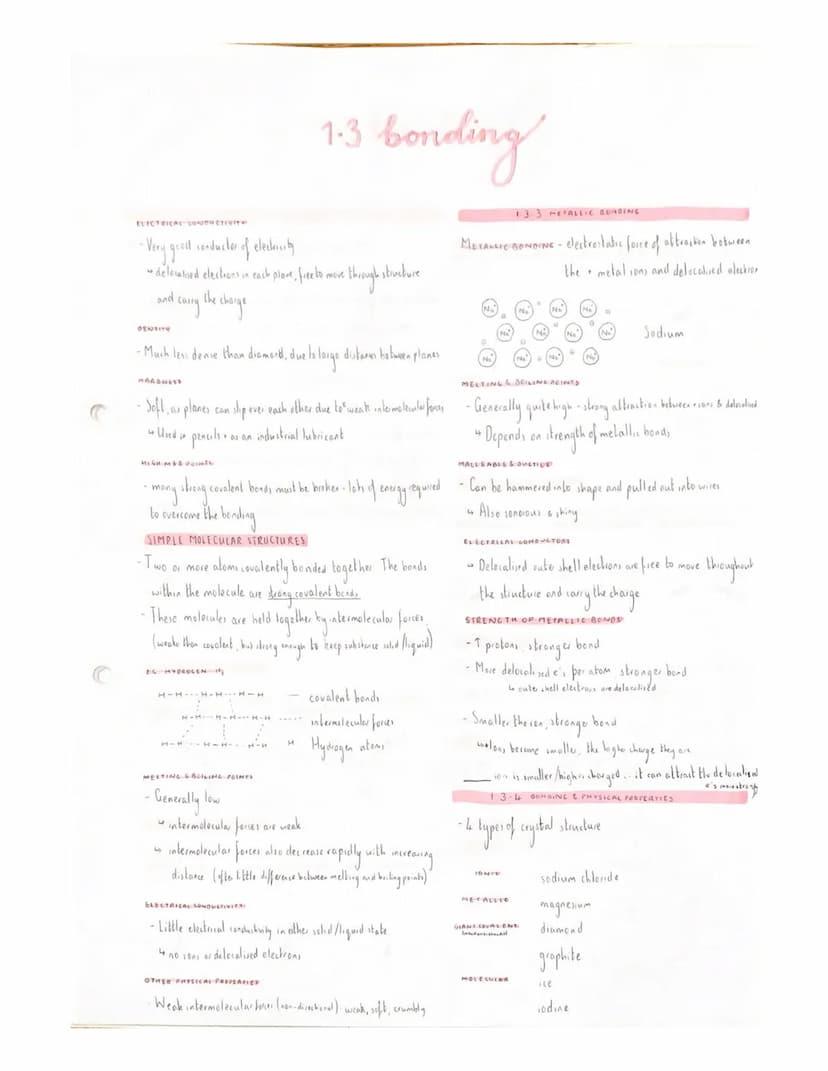 1.3 bonding
ELECTRICAL CONDUCTIVITY
- Very good conductor of electricity
↳ delocalised electrons in each plane, free to move through structure
and carry the charge
DENSITY
- Much less dense than diamond, due to large distances between planes
HARDNESS
- Soft, as planes can slip over each other due to weak intermolecular forces
↳ Used in pencils + as an industrial lubricant
HIGH M&B POINTS
- many strong covalent bonds must be broken - lots of energy required
to overcome the bonding
SIMPLE MOLECULAR STRUCTURES
- Two or more atoms covalently bonded together. The bonds
within the molecule are strong covalent bonds
- These molecules are held together by intermolecular forces
(weaker than covalent, but strong enough to keep substance solid/liquid)
EG. HYDROGEN H₂
H-H---H-H---H-H — covalent bonds
H-H---H-H---H-H ---- intermolecular forces
H-H---H-H---H-H H Hydrogen atoms
MELTING & BOILING POINTS
- Generally low
↳ intermolecular forces are weak
↳ intermolecular forces also decrease rapidly with increasing
distance (often little difference between melting and boiling points)
ELECTRICAL CONDUCTIVITY
- Little electrical conductivity in either solid/liquid state
↳ no ions or delocalised electrons
OTHER PHYSICAL PROPERTIES
- Weak intermolecular forces (non-directional) weak, soft, crumbly
1.3.3 METALLIC BONDING
METALLIC BONDING - electrostatic force of attraction between
the + metal ions and delocalised electron
Na⁺ Na⁺ Na⁺ Na⁺
Na⁺ Na⁺ Na⁺ Na⁺ Sodium
Na⁺ Na⁺ Na⁺ Na⁺
MELTING & BOILING POINTS
- Generally quite high - strong attraction between + ions & delocalised
↳ Depends on strength of metallic bonds
MALLEABLE & DUCTILE
- Can be hammered into shape and pulled out into wires
↳ Also sonorous & shiny
ELECTRICAL CONDUCTORS
↳ Delocalised outer shell electrons are free to move throughout
the structure and carry the charge
STRENGTH OF METALLIC BONDS
- ↑ protons, stronger bond
- More delocalised e⁻s per atom stronger bond
↳ outer shell electrons are delocalised
- Smaller the ion, stronger bond
↳ Ions become smaller, the higher charge they are
ion is smaller/higher charged ∴ it can attract the delocalised
e⁻s more strongly
1.3.4 BONDING & PHYSICAL PROPERTIES
- 4 types of crystal structure
IONIC sodium chloride
METALLIC magnesium
GIANT COVALENT diamond
graphite
MOLECULAR ice
iodine